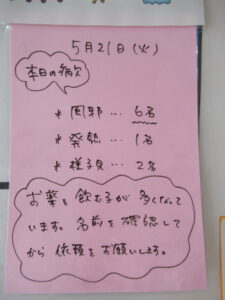 5月21日(火)
本日の病欠
* 風邪… 6名
* 発熱… 1名
* 様子見… 2名
お薬を飲む子が多くなって
います。名前を確認して
から依頼をお願いします。